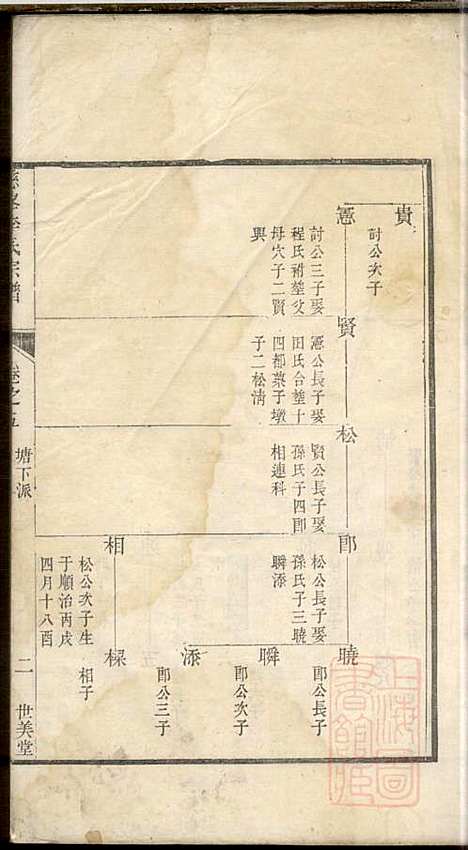 貴
討公次子
憲
討公三子娶
程氏祔塋父
母穴子二賢
興
賢
憲公長子娶
田氏合塋十
四都葉子墩
子二松淸
松
賢公長子娶
孫氏子四郎
相連科
郎
松公長子娶
孫氏子三曉
瞬添
曉
郎公長子
瞬
郎公次子
添
郎公三子
相
松公次子生
于順治丙戌
四月十八酉
樑
相子
氏宗譜
卷之五
塘下派
二
世美堂
上海圖
書館藏